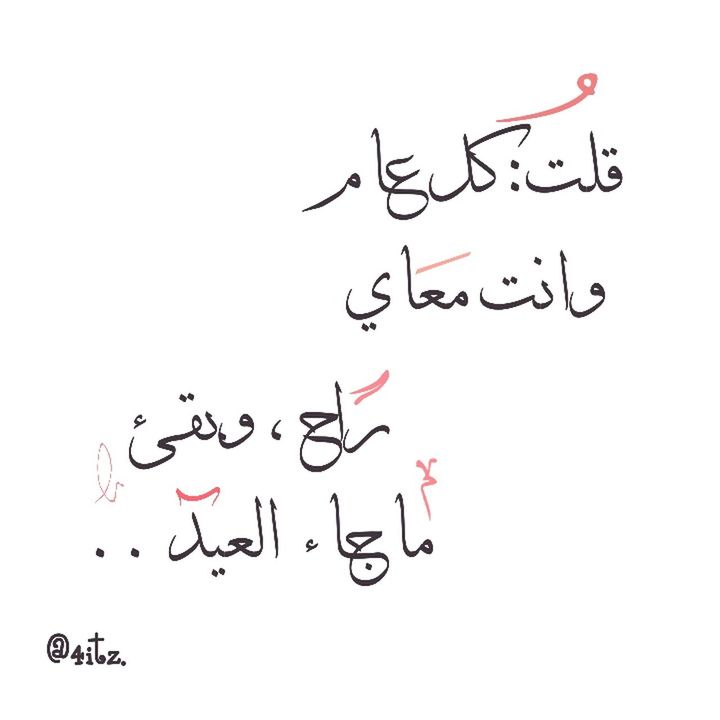 قلت: كُل عام
وانت معَاي
رَاح ، وبقئ
ما جاء العيد . .
@4itz.